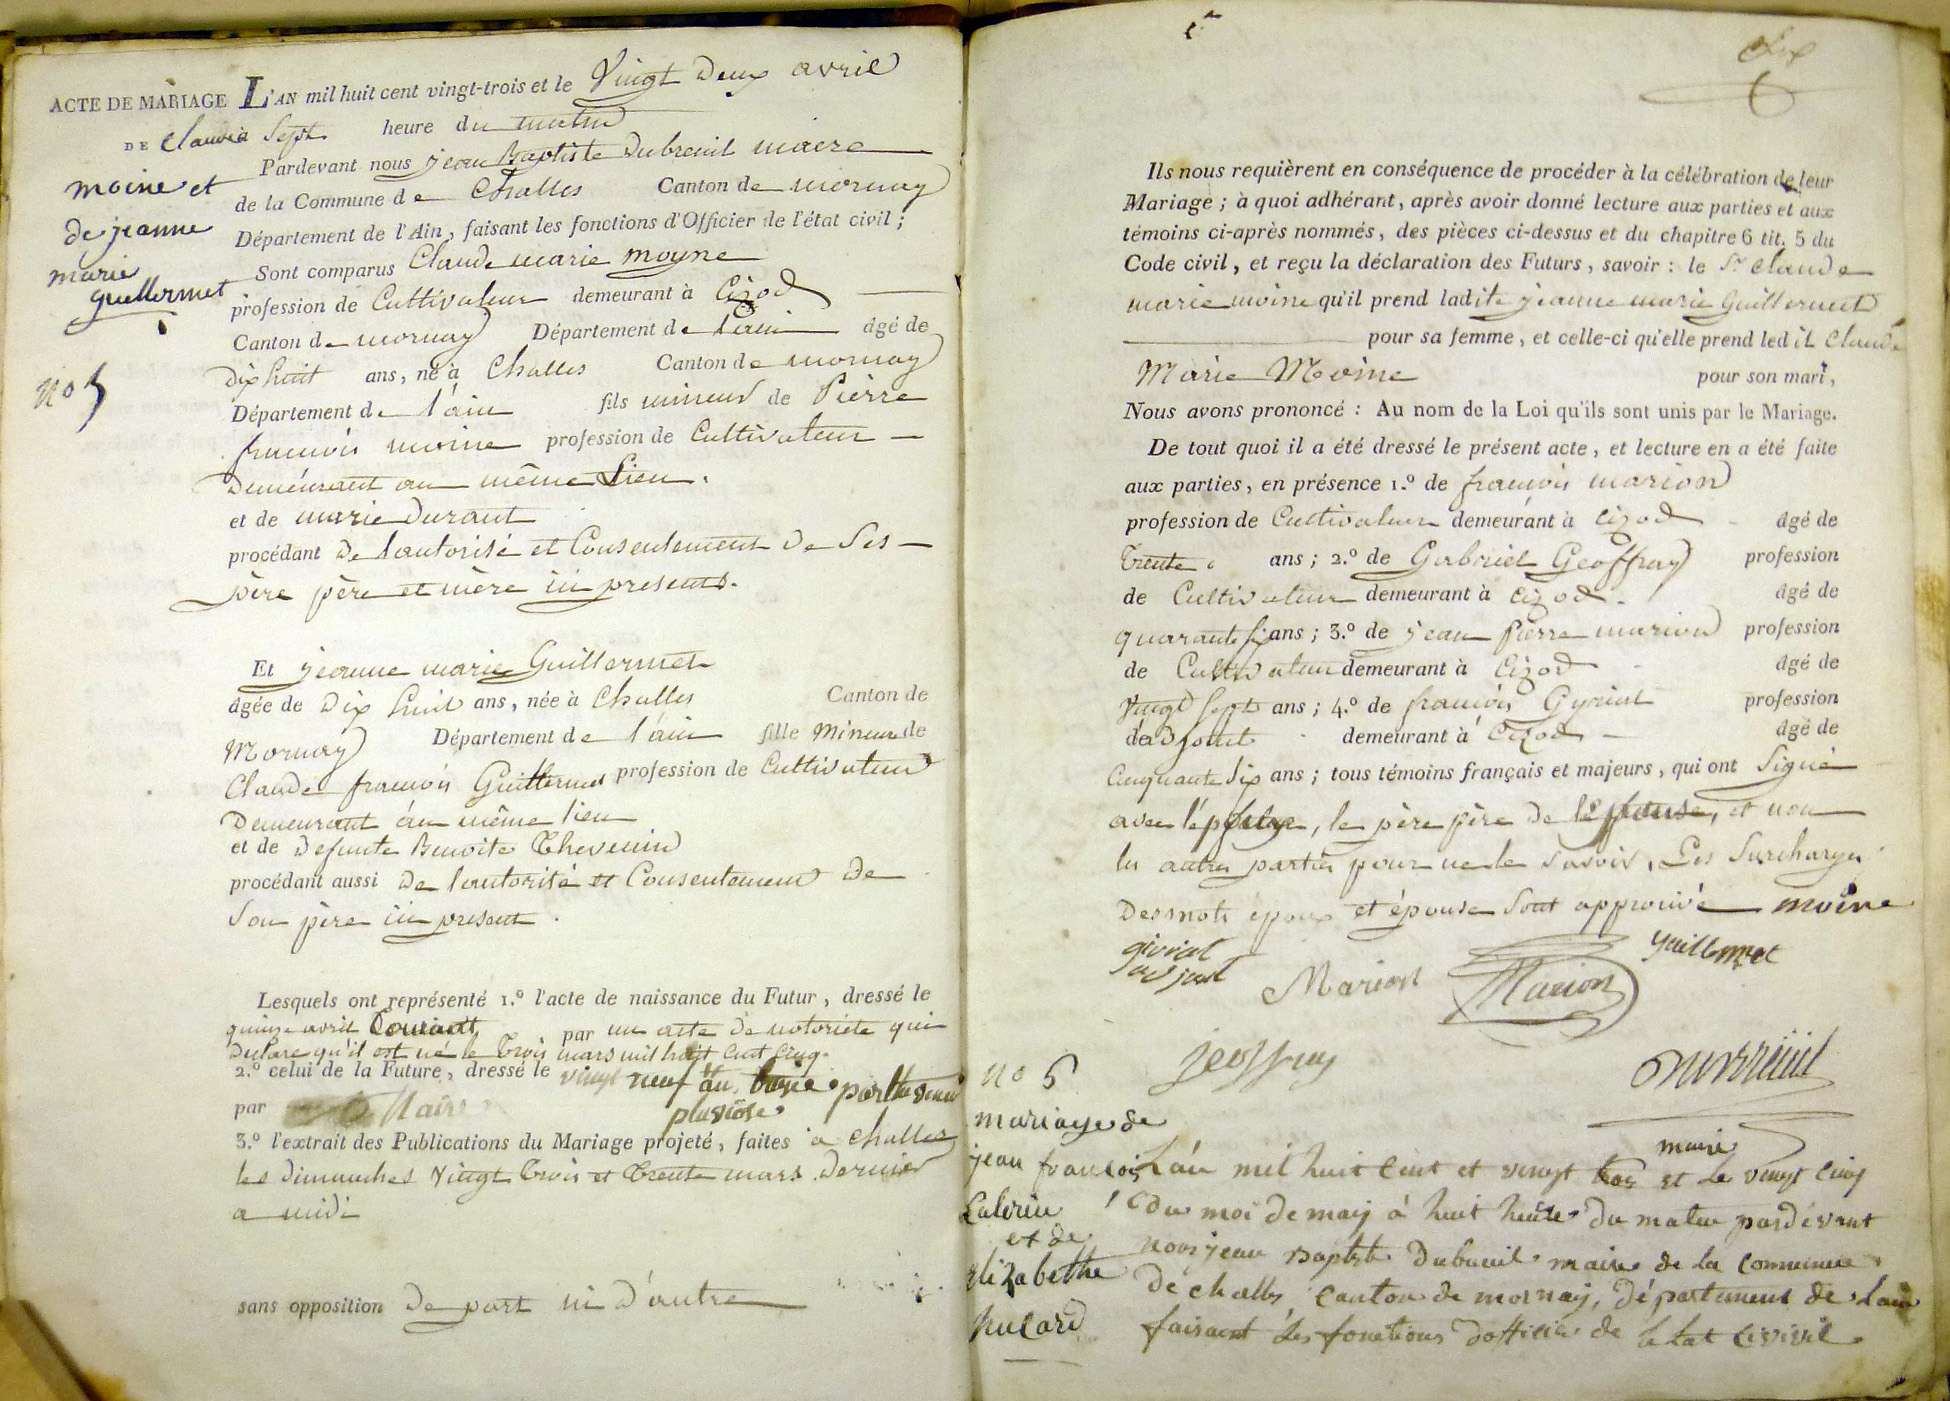 ACTE DE MARIAGE
DE Claude
moine et
de jeanne
marie
guillermet
No 5
L'AN mil huit cent vingt-trois et le Vingt Deux avril
à Sept heure du matin
Pardevant nous jean Baptiste Dubreuil maire
de la Commune de Challes Canton de mornay
Département de l'Ain, faisant les fonctions d'Officier de l'état civil ;
Sont comparus Claude marie moyne
profession de Cultivateur demeurant à Cizod
Canton de mornay Département de l'ain âgé de
Dix huit ans, né à Challes Canton de mornay
Département de l'ain fils mineur de Pierre
francois moine profession de Cultivateur
Demeurant au même Lieu.
et de marie Durant
procédant De lautorité et Consentement De Ses
père père et mère ici presents.
Et jeanne marie Guillermet
âgée de Dix huit ans, née à Challes Canton de
Mornay Département de l'ain fille Mineure de
Claude francois Guillermet profession de Cultivateur
Demeurant au même lieu
et de Defunte Benoite Thevenin
procédant aussi De lautorité et Consentement De
Son père ici present.
Lesquels ont représenté 1.º l'acte de naissance du Futur, dressé le
quinze avril Courant par un acte De notoriété qui
Declare qu'il est né le Trois mars mil huit Cent Cinq.
2.º celui de la Future, dressé le vingt neuf pluviose an treize par thevenin
par Maire
3.º l'extrait des Publications du Mariage projeté, faites à Challes
les Dimanches Vingt Trois et Trente mars Dernier
a midi
sans opposition De part ni D'autre
Dix
Ils nous requièrent en conséquence de procéder à la célébration de leur
Mariage ; à quoi adhérant, après avoir donné lecture aux parties et aux
témoins ci-après nommés, des pièces ci-dessus et du chapitre 6 tit. 5 du
Code civil, et reçu la déclaration des Futurs, savoir : le Sr Claude
marie moine qu'il prend ladite jeanne marie Guillermet
pour sa femme, et celle-ci qu'elle prend ledit Claude
Marie Moine pour son mari,
Nous avons prononcé : Au nom de la Loi qu'ils sont unis par le Mariage.
De tout quoi il a été dressé le présent acte, et lecture en a été faite
aux parties, en présence 1.º de francois marion
profession de Cultivateur demeurant à Cizod âgé de
Trente ans ; 2.º de Gabriel Geoffray profession
de Cultivateur demeurant à Cizod. âgé de
quarante six ans ; 3.º de jean Pierre marion profession
de Cultivateur demeurant à Cizod âgé de
Vingt Sept ans ; 4.º de francois Gyriat profession
de adjoint demeurant à Cizod âgé de
Cinquante Six ans ; tous témoins français et majeurs, qui ont Signé
avec l'époux, le père père de l'épouse, et non
les autres parties pour ne le Savoir, Les Surcharges
Des mots époux et épouse Sont approuvé moine
giriat adjoint Marion Marion guillermet
jeoffray Dubreuil
maire
No 6
mariage de
jean francois
Laberiu
et de
Elizabethe
hucard
L'an mil huit Cent et vingt trois et le vingt cinq
Du moi de may à huit heure du matin pardevant
nous jean Baptiste Dubreuil maire de la Commune
De challes Canton de mornay, département de Lain
faisant les fonctions dofficie de letat Civivil